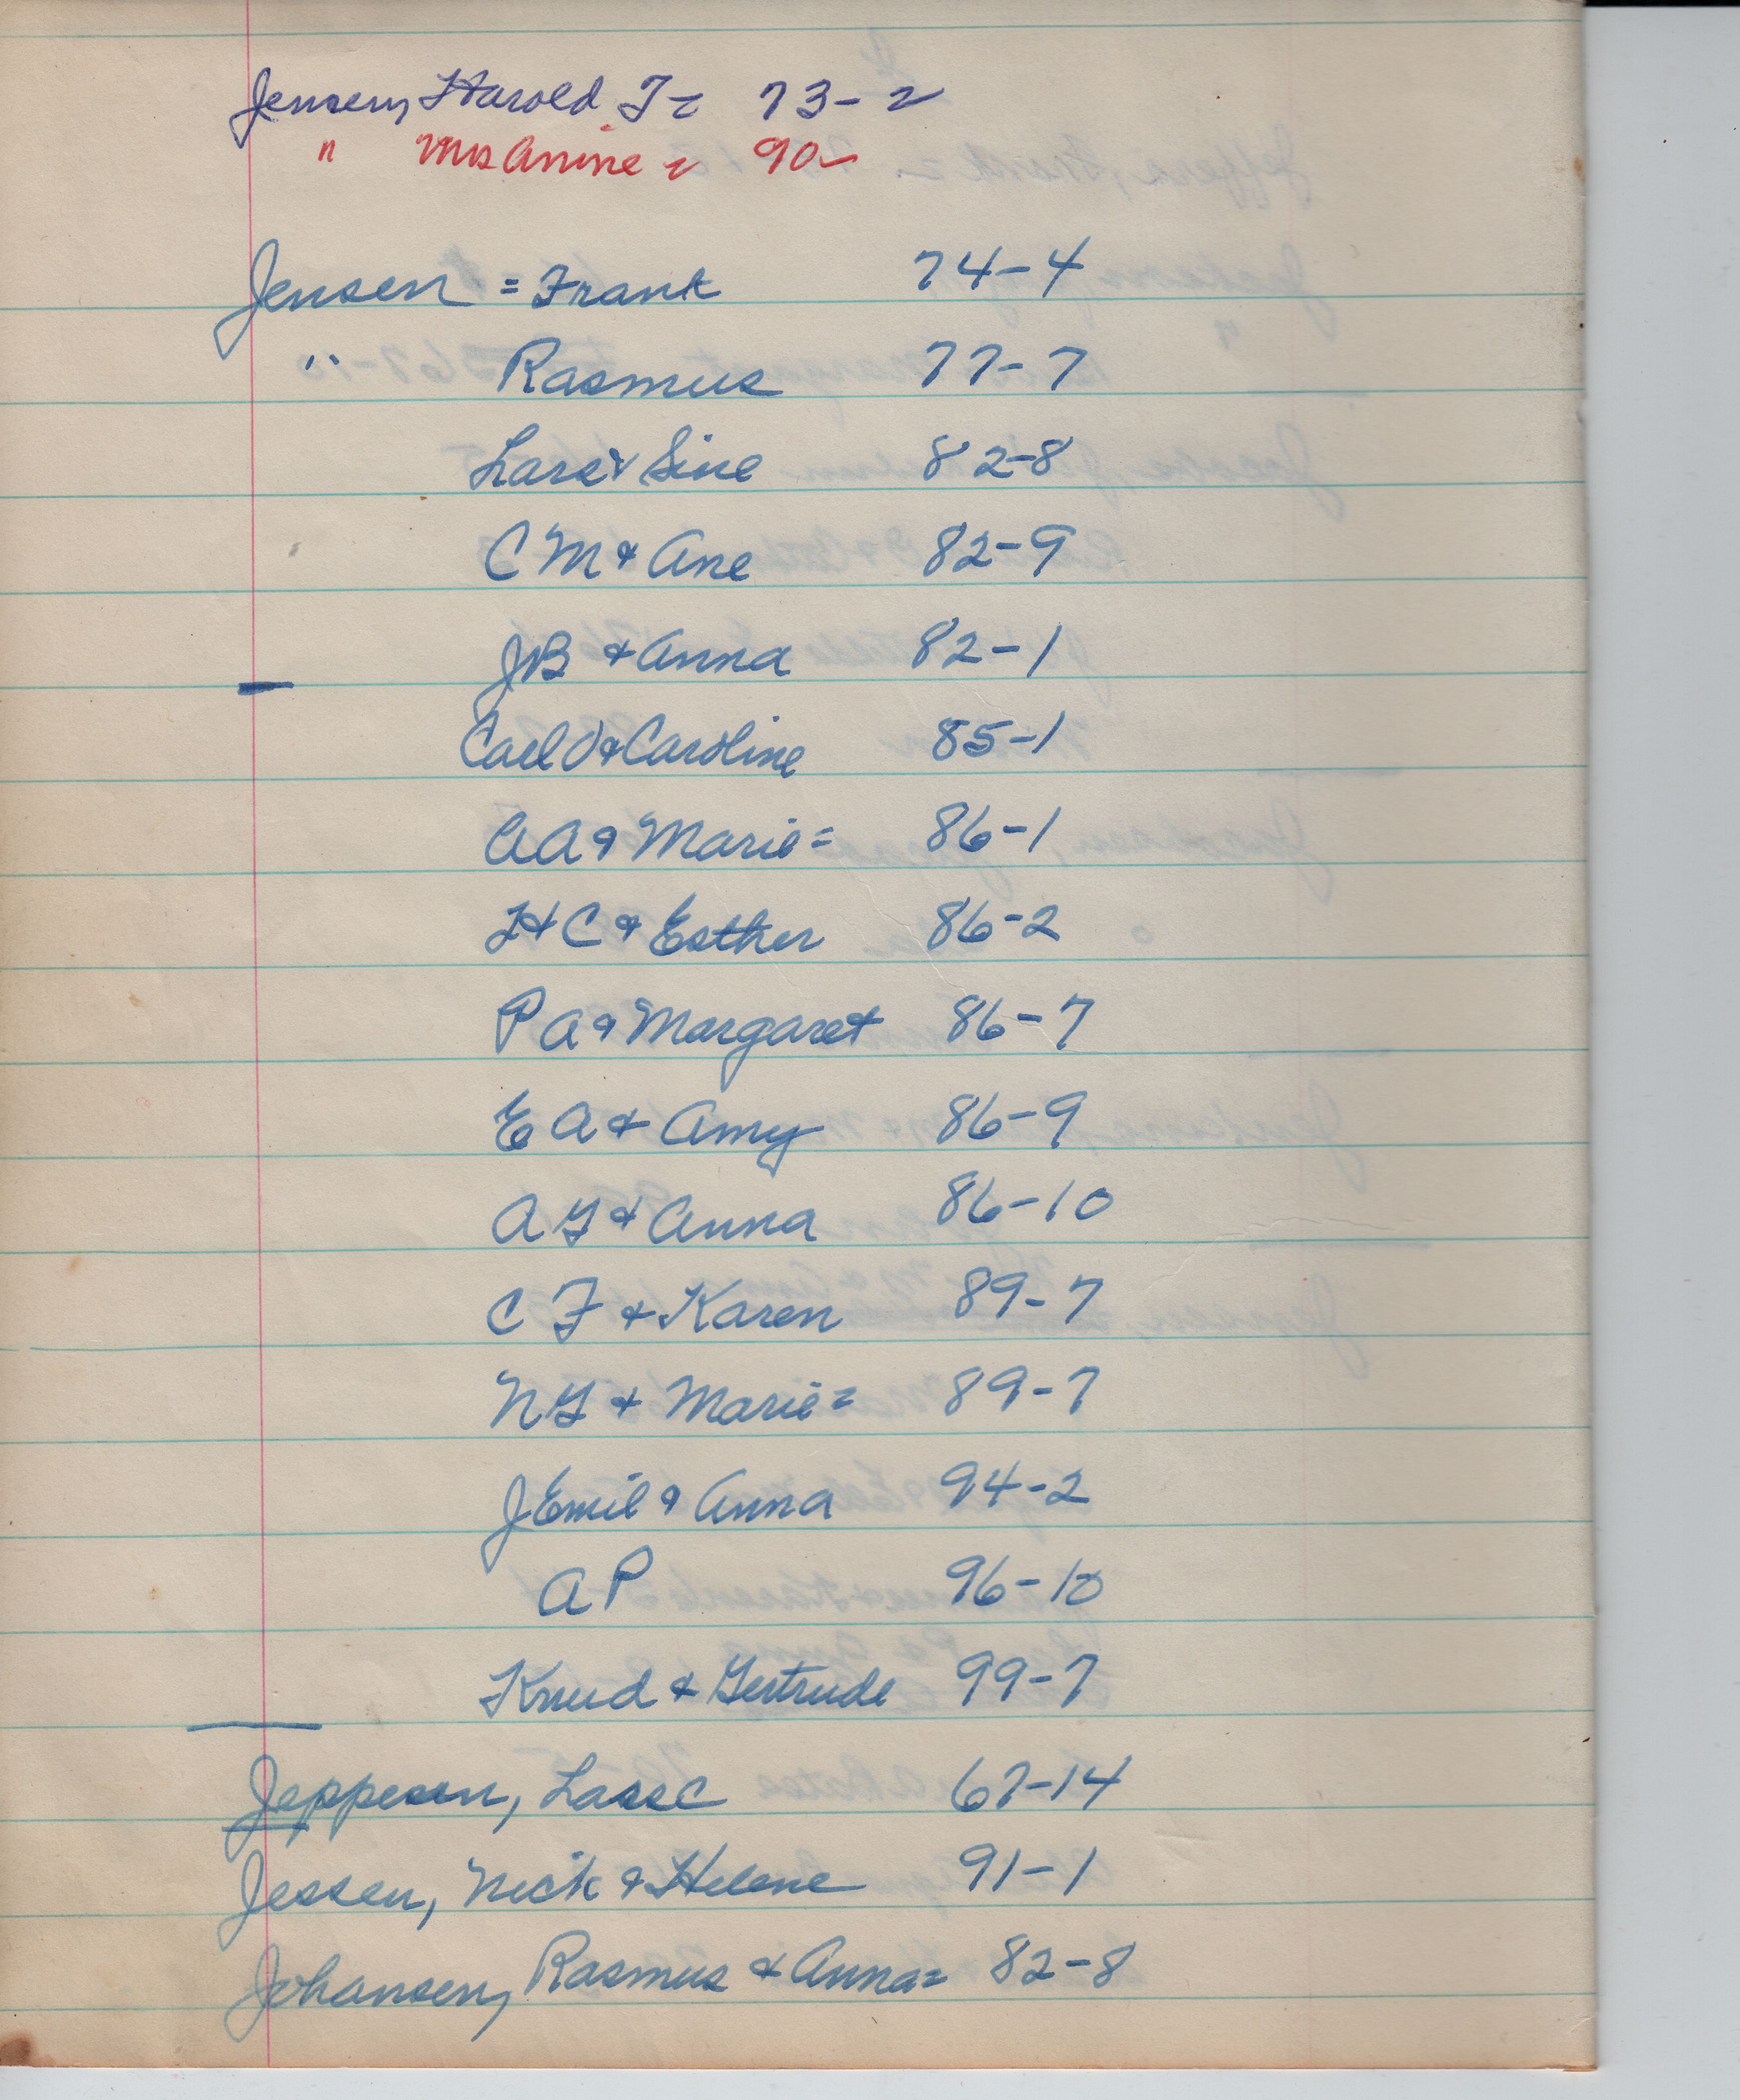 Jensen, Harold J= 73-2
" Mrs Anine = 90-
Jensen = Frank 74-4
" Rasmus 77-7
Lars & Sine 82-8
C M & Ane 82-9
JB & Anna 82-1
Carl O & Caroline 85-1
AA & Marie= 86-1
H C & Esther 86-2
P A & Margaret 86-7
E A & Amy 86-9
A G & Anna 86-10
C F & Karen 89-7
N G & Marie= 89-7
J Emil & Anna 94-2
A P 96-10
Knud & Gertrude 99-7
Jeppesen, Lasse 67-14
Jessen, Nick & Helene 91-1
Johansen, Rasmus & Anna= 82-8